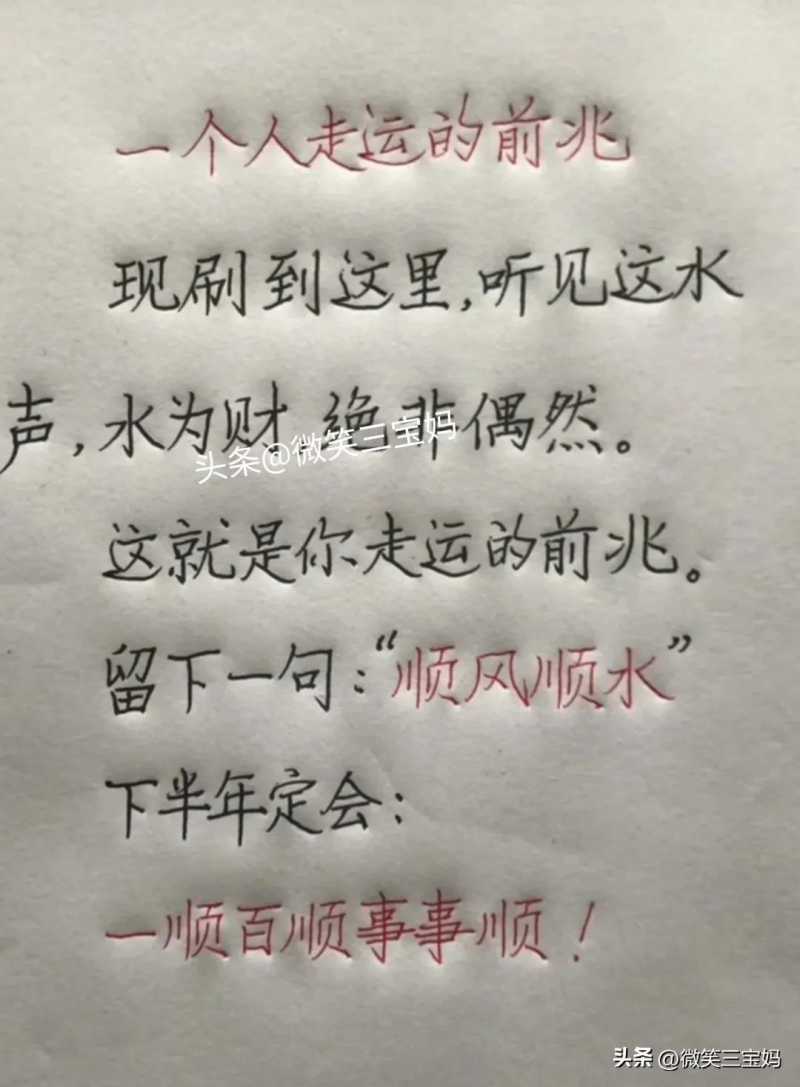 一个人走运的前兆
现刷到这里,听见这水
声,水为财,绝非偶然。
头条@微笑三宝妈
这就是你走运的前兆。
留下一句:“顺风顺水”
下半年定会:
一顺百顺事事顺!
头条 @微笑三宝妈